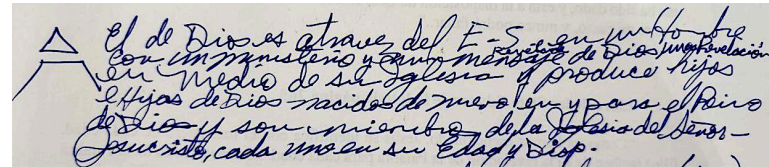 El de Dios es atravez del E-S en un Hombre
con un ministerio y con un mensaje de Dios y una Revelación
en Medio de su Iglesia y produce hijos
e Hijas de Dios nacidos de nuevo en y para el Reino
de Dios y son miembros de la Iglesia del Señor
Jesucristo, cada uno en su Edad y Disp.